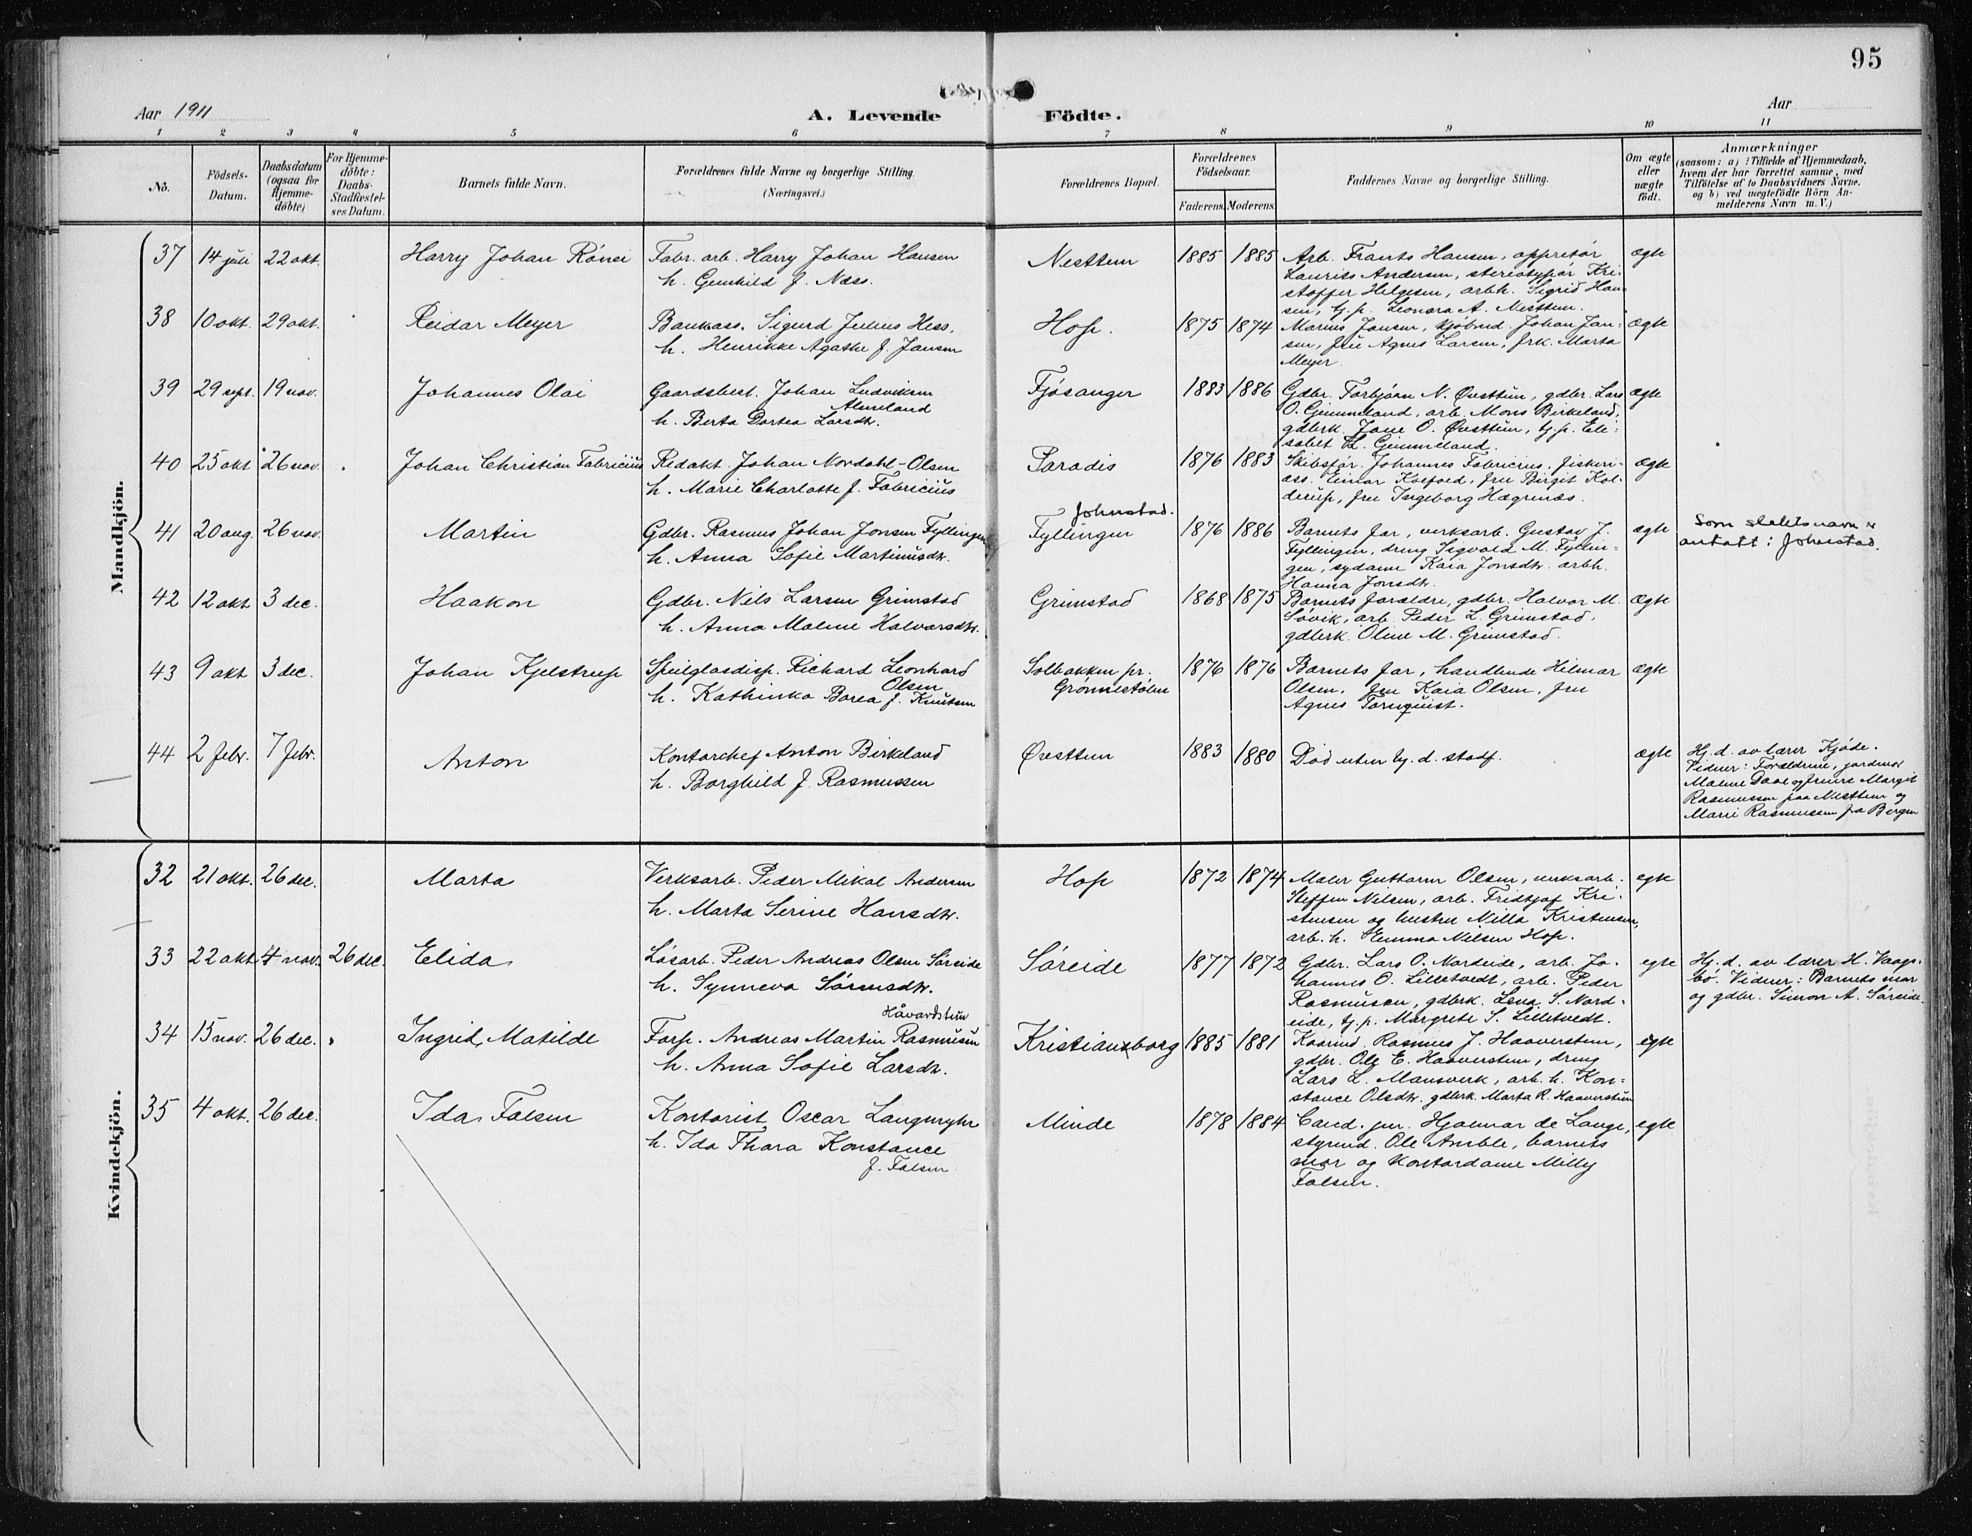 95
Aar 1911
A. Levende Födte.
Aar
1 2 3 4 5 6 7 8 9 10 11
No.
Födsels-Datum.
Daabsdatum (ogsaa for Hjemme-döbte)
For Hjemme-döbte: Daabs-Stadfæstel-ses Datum.
Barnets fulde Navn.
Forældrenes fulde Navne og borgerlige Stilling.
(Næringsvei.)
Forældrenes Bopæl.
Forældrenes Födselsaar.
Faderens. Moderens.
Faddernes Navne og borgerlige Stilling.
Om ægte eller uægte födt.
Anmærkninger
(saasom: a) i Tilfælde af Hjemmedaab,
hvem der har forrettet samme, med
Tilföielse af to Daabsvidners Navne,
og b) ved uægtefödte Börn An-
melderens Navn m. V.)
Mandkjön.
37 14 juli 22 okt. Harry Johan Rönei
Fabr. arb. Harry Johan Hansen
h. Gunhild f. Næss.
Nesttun 1885 1885
Arb. Frants Hansen, appretør
Laurits Andersen, stereotypør Kri-
stoffer Helgesen, arbh. Sigrid Han-
sen, tj. p. Leonora A. Nesttun.
ægte
38 10 okt. 29 okt. Reidar Meyer
Bankass. Sigurd Julius Hess,
h. Henrikke Agathe f. Jansen
Hop. 1875 1874
Marius Jansen, kjøbmd. Johan Jan-
sen, fru Agnes Larsen, frk. Marta
Meyer.
ægte
39 29 sept. 19 nov. Johannes Olai
Gaardsbest. Johan Ludviksen
Almeland
h. Berta Dortea Larsdtr.
Fjøsanger 1883 1886
Gdbr. Torbjørn N. Øvsttun, gdbr. Lars
O. Gimmeland, arb. Mons Birkeland,
gdbrk. Jone O. Øvsttun, tj. p. Eli-
sabet L. Gimmeland.
ægte
40 25 okt. 26 nov. Johan Christian Fabricius
Redakt. Johan Nordahl-Olsen
h. Marie Charlotte f. Fabricius
Paradis 1876 1883
Skibsfør. Johannes Fabricius, fiskeri-
ass. Einar Koefoed, fru Birgit Kol-
derup, fru Ingeborg Hægrenæs.
ægte
41 20 aug. 26 nov. Martin
Gdbr. Rasmus Johan Jonsen Fyllingen
h. Anna Sofie Martinusdtr.
Johnstad.
Fyllingen 1876 1886
Barnets far, verksarb. Gustav J.
Fyllingen, dreng Sigvald M. Fyllin-
gen, sydame Kaia Jonsdtr. arbh.
Hanna Jonsdtr.
ægte
Som slektsnavn er
antatt: Johnstad.
42 12 okt. 3 dec. Haakon
Gdbr. Nils Larsen Grimstad
h. Anna Maline Halvorsdtr.
Grimstad 1868 1875
Barnets forældre, gdbr. Halvor M.
Søvik, arb. Peder L. Grimstad,
gdbrk. Oline M. Grimstad.
ægte
43 9 okt 3 dec. Johan Kjelstrup
Speilglasdisp. Richard Leonhard
Olsen
h. Kathinka Borea f. Knutsen
Solbakken pr.
Grønnestølen 1876 1876
Barnets far, handlende Hilmar
Olsen, fru Kaia Olsen, fru
Agnes Tornquist.
ægte
44 2 febr. 7 febr. Anton
Kontorchef Anton Birkeland
h. Borghild f. Rasmussen
Øvsttun 1883 1880
Død uten hj. d. stadf.
ægte
Hj. d. av lærer Kjøde.
Vidner: Forældrene, jordmor
Maline Daae og frøkene Margit
Rasmussen paa Nesttun og
Marie Rasmussen fra Bergen
Kvindekjön.
32 21 okt. 26 dec. Marta
Verksarb. Peder Mikal Andersen
h. Marta Serine Hansdtr.
Hop 1872 1874
Maler Guttorm Olsen, verksarb.
Steffen Nilsen, arb. Fridtjof Kri-
stensen og hustru Nilla Kristensen,
arb. h. Emma Nilsen Hop.
egte
33 22 okt. 4 nov. 26 dec. Elida
Løsarb. Peder Andreas Olsen Søreide
h. Synneva Sørensdtr.
Søreide 1877 1872
Gdbr. Lars O. Nordeide, arb. Jo-
hannes O. Lilletvedt, arb. Peder
Rasmussen, gdbrk. Lena S. Nord-
eide, tj. p. Margrete S. Lilletvedt.
egte
Hj. d. av lærer H. Vaags-
bø. Vidner: Barnets mor
og gdbr. Simon A. Søreide.
34 15 nov. 26 dec. Ingrid Matilde
Håvardstun
Forp. Andreas Martin Rasmussen
h. Anna Sofie Larsdtr.
Kristiansborg 1885 1881
Kaarmd. Rasmus J. Haaverstun,
gdbr. Ole E. Haaverstun, dreng
Lars L. Mansverk, arb. h. Kon-
stance Olsdtr. gdbrk. Marta R. Haaverstun
egte
35 4 okt. 26 dec. Ida Falsen
Kontorist Oscar Langmyhr
h. Ida Thora Konstance
f. Falsen
Minde 1878 1884
Cand. jur. Hjalmar de Lange,
styrmd. Ole Amble, barnets
mor og kontordame Milly
Falsen.
egte